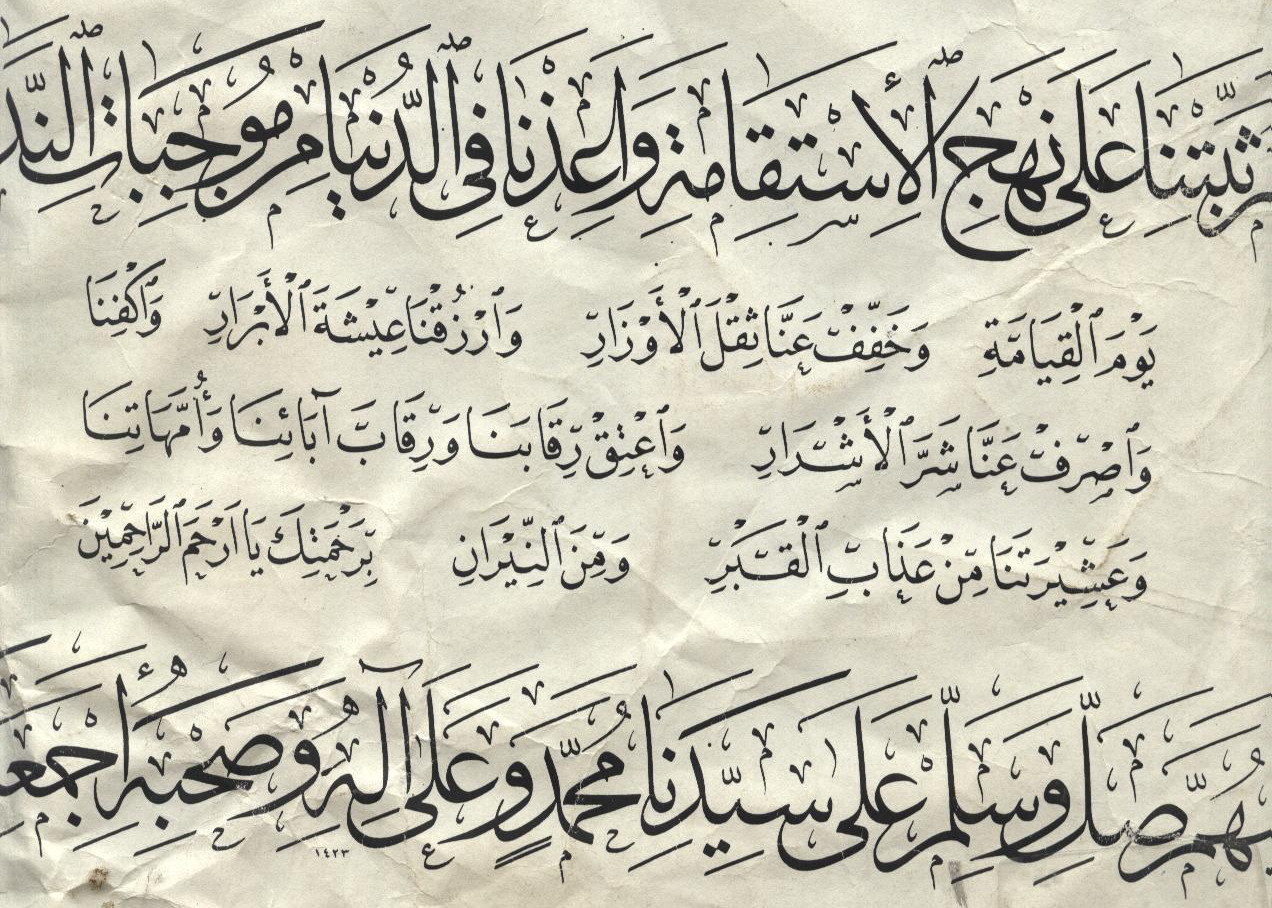 ثَبِّتْنَا عَلَى نَهْجِ ٱلْإِسْتِقَامَةِ وَأَعِذْنَا فِي ٱلدُّنْيَا مِنْ مُوجِبَاتِ ٱلنَّدَ
يَوْمَ ٱلْقِيَامَةِ وَخَفِّفْ عَنَّا ثِقْلَ ٱلْأَوْزَارِ وَٱرْزُقْنَا عِيْشَةَ ٱلْأَبْرَارِ وَٱكْفِنَا
وَٱصْرِفْ عَنَّا شَرَّ ٱلْأَشْرَارِ وَٱعْتِقْ رِقَابَنَا وَرِقَابَ آبَائِنَا وَأُمَّهَاتِنَا
وَعَشِيْرَتَنَا مِنْ عَذَابِ ٱلْقَبْرِ وَمِنَ ٱلنِّيْرَانِ بِرَحْمَتِكَ يَا اَرْحَمَ ٱلرَّاحِمِيْنَ
صَلِّ وَسَلِّمْ عَلَى سَيِّدِنَا مُحَمَّدٍ وَعَلَى آلِهِ وَصَحْبِهِ أَجْمَعِ
١٤٢٣